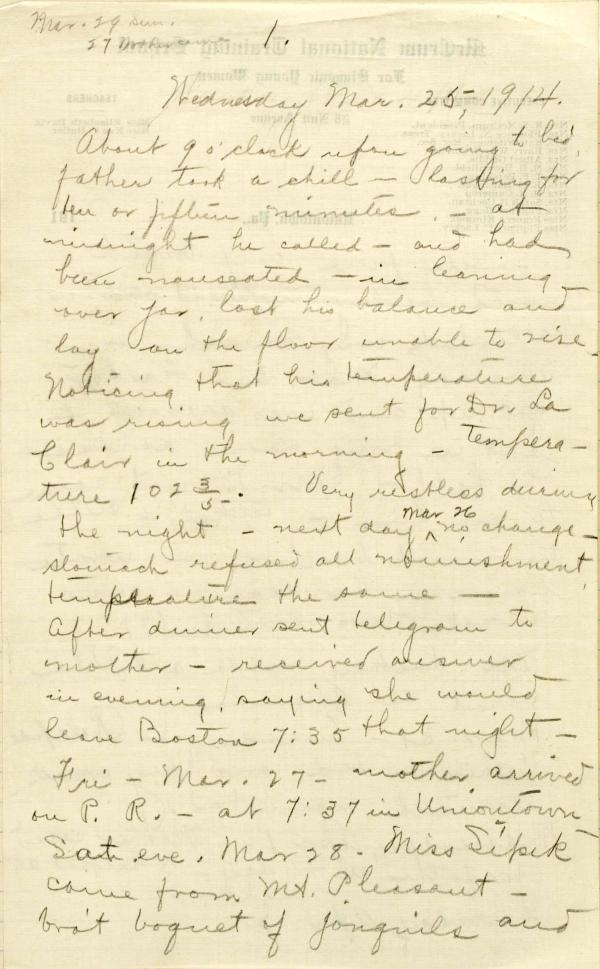 Mar. 29 Sun.
27 Mother came
1.
Wednesday Mar. 25, 1914.
About 9 o'clock upon going to bed,
father took a chill — lasting for
ten or fifteen minutes, — at
midnight he called — and had
been nauseated — in leaning
over jar, lost his balance and
lay on the floor unable to rise.
Noticing that his temperature
was rising we sent for Dr. La
Clair in the morning — tempera-
ture 102 3/5. Very restless during
the night — next day Mar 26 no change —
stomach refused all nourishment,
temperature the same —
After dinner sent telegram to
mother — received answer
in evening, saying she would
leave Boston 7:35 that night —
Fri — Mar. 27 — mother arrived
on P. R. — at 7:37 in Uniontown
Sat. eve. Mar 28 - Miss Sipek
came from Mt. Pleasant —
bro't boquet of jonquils and